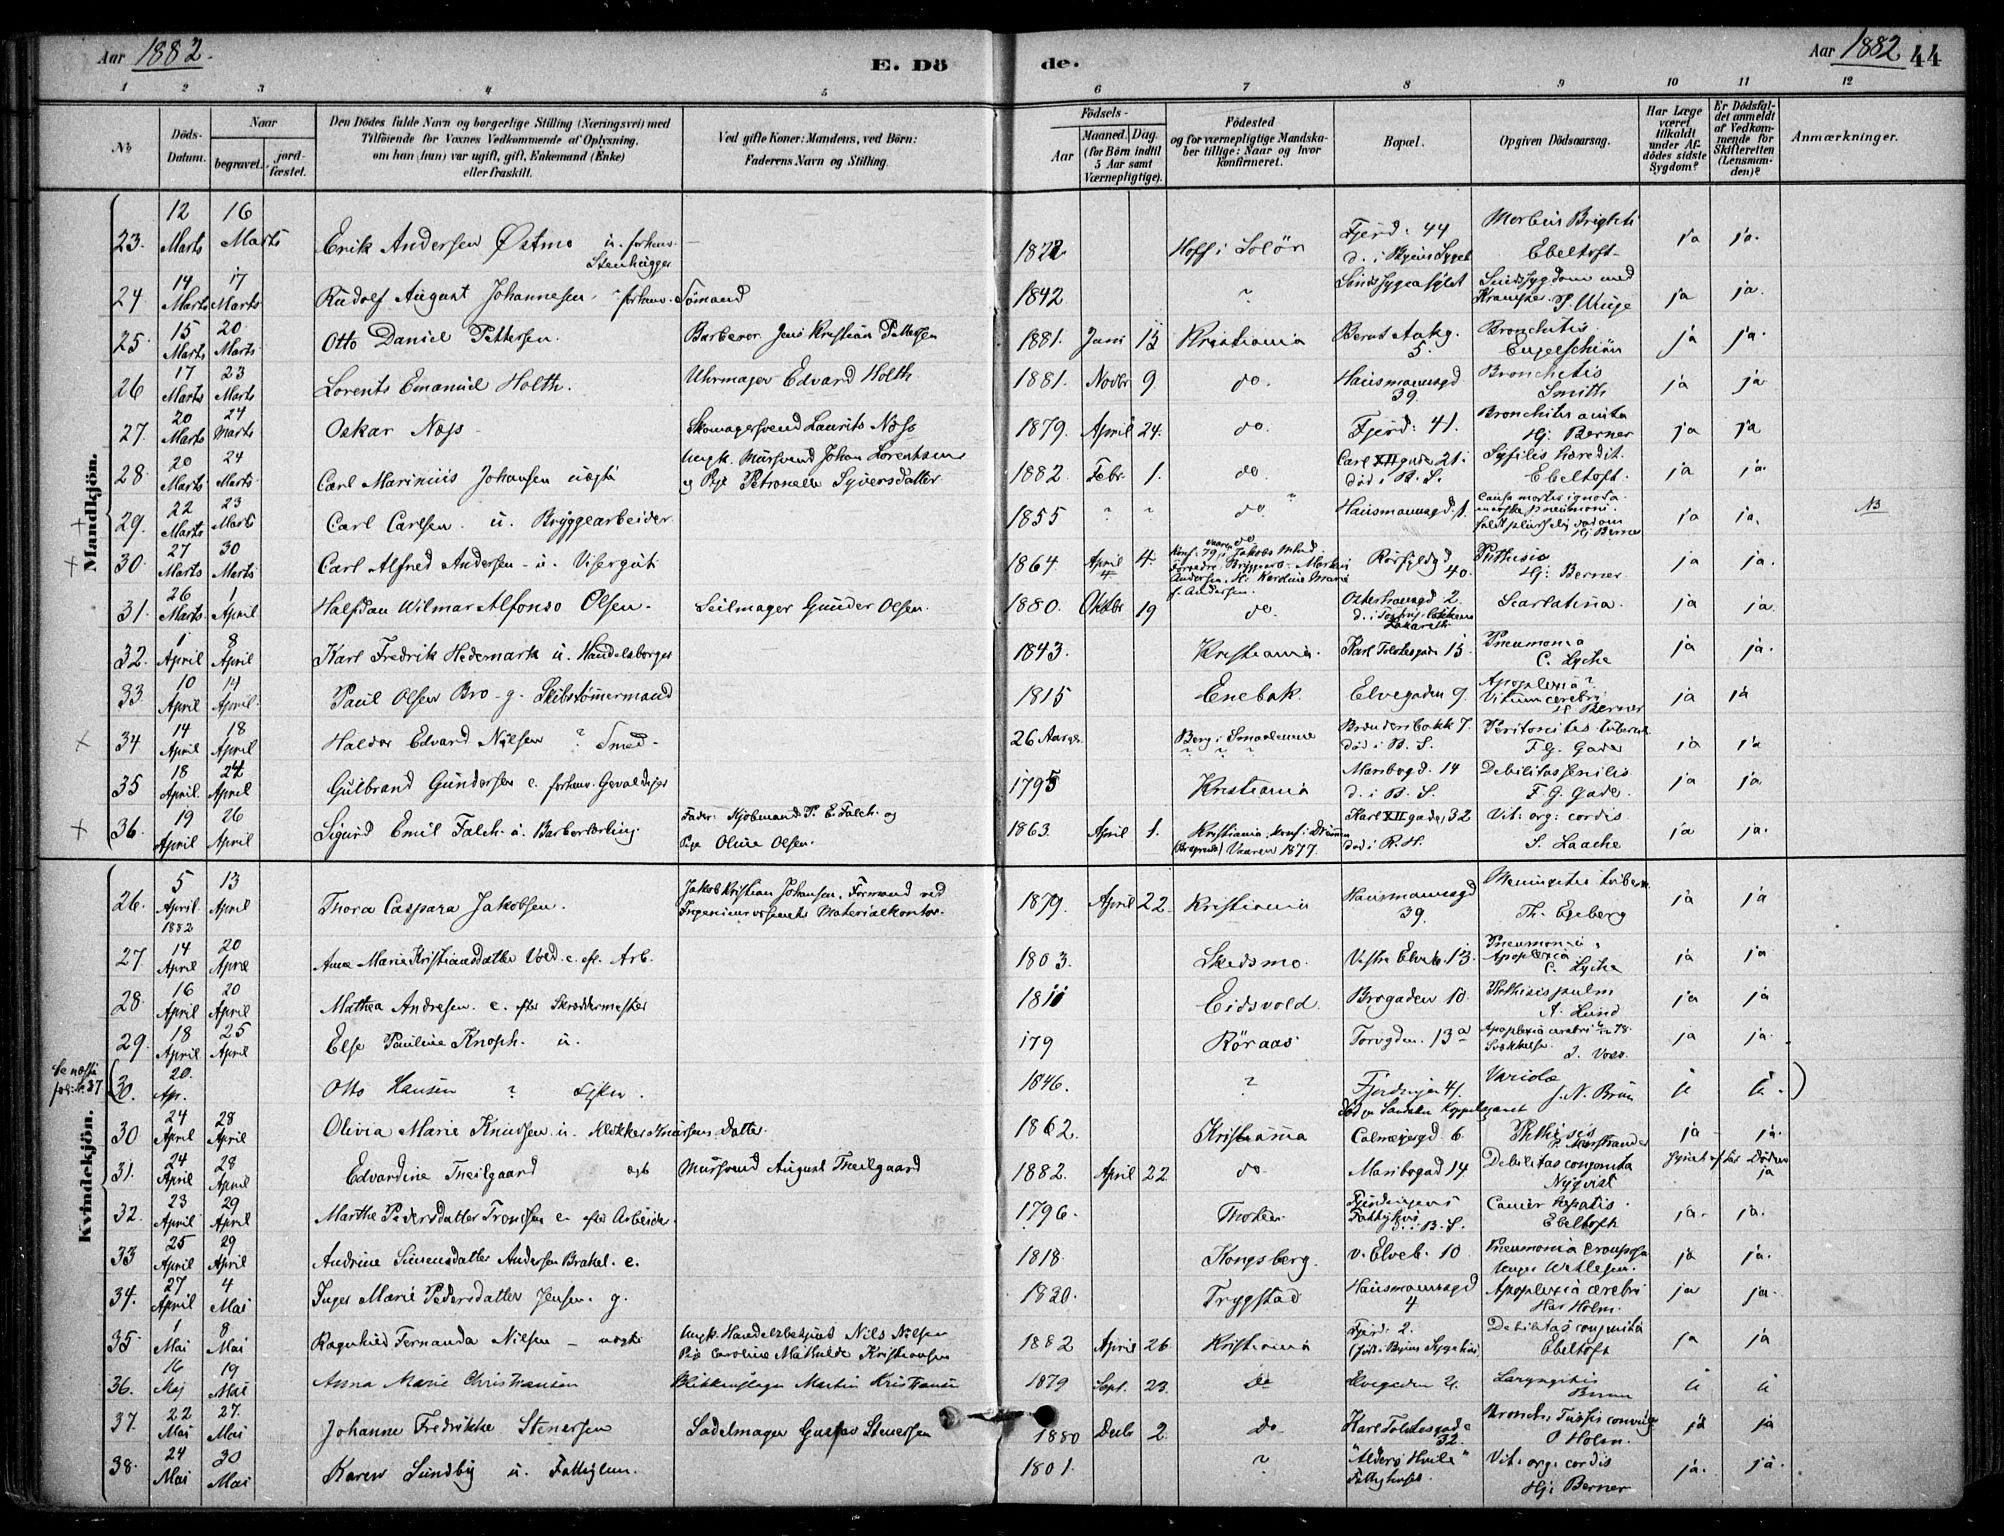 Aar 1882.
E. Dö
de.
Aar 1882 44
1 2 3 4 5 6 7 8 9 10 11 12
№
Döds-Datum.
Naar
begravet. jordfæstet.
Den Dödes fulde Navn og borgerlige Stilling (Næringsvei) med
Tilföiende for Voxnes Vedkommende af Oplysning,
om han (hun) var ugift, gift, Enkemand (Enke)
eller fraskilt.
Ved gifte Koner: Mandens, ved Börn:
Faderens Navn og Stilling.
Födsels-
Aar
Maaned. Dag.
(for Börn indtil
5 Aar samt
Værnepligtige).
Födested
og for værnepligtige Mandskaber tillige: Naar og hvor
konfirmeret.
Bopæl.
Opgiven Dödsaarsag.
Har Læge
været
tilkaldt
under Afdödes sidste
Sygdom?
Er Dödsfaldet anmeldt
af Vedkommende for
Skifteretten
(Lensmanden)?
Anmærkninger.
Mandkjön.
23. 12 Marts 16 Marts Erik Andersen Østmo u. forhenv. Stenhugger 1822 Hoff i Solör Fjerd: 44 d. i Byens Syget Morbus Brighti Ebeltoft ja ja.
24 14 Marts 17 Marts Rudolf August Johannesen ? forhenv. Sömand 1842 ? Sindssygeasylet Sindssygdom med Kramper. ja ja.
25. 15 Marts 20 Marts Otto Daniel Pettersen. Barberer Jens Kristian Pettersen 1881. Juni 15 Kristiania Bernt Ankg. 5. Bronchitis Engelschiön ja ja.
26 17 Marts 23 Marts Lorents Emanuel Holth. Uhrmager Edvard Holth 1881. Novbr 9 do. Hausmannsgd 39. Bronchitis Smith ja ja
27. 20 Marts 24 Marts Oskar Næss Skomagersvend Laurits Næss 1879. April 24. do. Fjerd: 41. Bronchitis acuta Hj. Berner ja ja
28. 20 Marts 24 Marts Carl Marinius Johansen uægte Ungk. Mursvend Johan Lorentsen og Pige Petronelle Syversdatter 1882 Febr. 1. do Carl XII gade 21. död i B. S. Syfilis heredit. Ebeltoft. ja ja.
+ 29. 22 Marts 23 Marts Carl Carlsen. u. Bryggearbeider 1855 ? ? do ? Hausmannsgd 1. causa mortis ignota. maaske Pneumoni. faldt pludselig död om Hj Berner ja ja. NB
× 30. 27 Marts 30 Marts Carl Alfred Andersen - u. Visergut. 1864 April 4. do Konf. 79 i Jakobs Kirke Rörfyldgd 40. Phthisis Hj: Berner. ja ja.
31. 26 Marts 1 April Halfdan Wilmar Alfonso Olsen. Seilmager Gunder Olsen. 1880. Oktbr 19 do. Osterhausgd 2. Scarlatina. ja ja.
32. 1 April 8 April Karl Fredrik Hedemark u. Handelsborger 1843. Kristiania. Karl Tolstesgade 15 Pneumonia C. Lyche ja ja.
33. 10 April 14 April. Paul Olsen Bro - g. Skibstömmermand 1815 Enebak Elvegaden 9. Apoplexia? Vitium cerebri Hj Berner ja ja
× 34. 14 April 18 April Haldor Edvard Nilsen ? Smed. 26 Aar gl. Berg i Smaalenene ? ? ? Brenneribakk 7. död i B. S. Peritonitis tubercul. F. G. Gade ja ja
35 18 April. 24 April Gulbrand Gundersen e. forhenv. Gevaldiger 1795 Kristiania Maribogd. 14 d. i B. S. Debilitas senilis F. G. Gade. ja ja.
+ 36. 19 April 26 April Sigurd Emil Falch. u. Barberlærling Fader: Kjöbmand P. E. Falch og Pige Oline Olsen. 1863. April 1. Kristiania, konf. i Drammen (Bragernes) Vaaren 1877. Karl XII gade 32 död i R. H. Vit. org. cordis S. Laache ja ja.
Kvindekjön.
26. 5 April. 1882 13 April Thora Caspara Jakobsen. Jakob Kristian Johansen, Formand ved Ingenieurvæsenets Materialkontor. 1879. April 22. Kristiania Hausmannsgd 39. Meningitis tuberc. Th. Egeberg ja ja
27. 14 April 20 April Anne Marie Kristiansdatter Vold. e. eft. Arb. 1803. Skedsmo. Vestre Elveb. 13. Pneumonia, Apoplexia C. Lyche ja ja
28. 16 April 20 April Mathea Andresen e. efter Skræddermester 1811 Eidsvold Brogaden 10. Phthisis pulm A. Lund ja ja
29. 18 April 25 April Else Pauline Knoph. u. 179 Röraas Torvgden. 13a Apoplexia cerebri Svækkelse. J. Voss. ja ja.
Se næste
(30. 20. Apr. Otto Hansen ? 1846. ? Fjerdingen 41. Variolæ J. N. Bruun u u. )
30 24 April 28 April Olivia Marie Knudsen u. Klokker Knudsens Datter 1862. Kristiania Calmeyergd 6. Phthisis ja ja.
31. 24 April 28 April Edvardine Theilgaard ægt Mursvend August Theilgaard 1882. April 22 do Maribogad 14. Debilitas congenita Nyqvist Synet efter Döden ja
32. 23 April 29 April Marthe Pedersdatter Tronsen e. efter Arbeider. 1796. Thoten Fjerdingens Fattighus d. i B. S. Cancer hepatis. Ebeltoft ja. ja.
33 25 April 29 April Andrine Simensdatter Andersen Brakel. e. 1818. Kongsberg. v. Elveb. 10 Pneumonia crouposa ja ja.
34. 27 April 4 Mai Inger Marie Pedersdatter Jensen. g. 1820. Trygstad Hausmannsgd 4 Apoplexia cerebri Har Holm. ja ja.
35 1 Mai 8 Mai Ragnhild Fernanda Nilsen - uægte Ungk. Handelsbetjent Nils Nilsen Pige Caroline Mathilde Kristiansen 1882 April 26. Kristiania Fjerd: 2. (död i Byens Sygehus) Debilitas congenita Ebeltoft ja ja
36. 16 Maj 19 Mai Anna Marie Christiansen Blikkenslager Martin Kristiansen 1879 Sept. 23. do Elvegaden 4. Laryngitis u u
37. 22 Mai 27. Mai Johanne Fredrikke Stenersen Sadelmager Gustav Stenersen 1880 Decbr 2. do Karl Tolstesgade 32. Bronch: Tussis convuls. O Holm. ja ja
38. 24 Mai 30 Mai Karen Sundby u. Fattiglem. 1801. ? "Alders Hvile" Fattighuset. Vit: org: cordis Hj: Berner ja. ja.